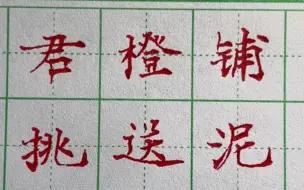 君橙铺
挑送泥